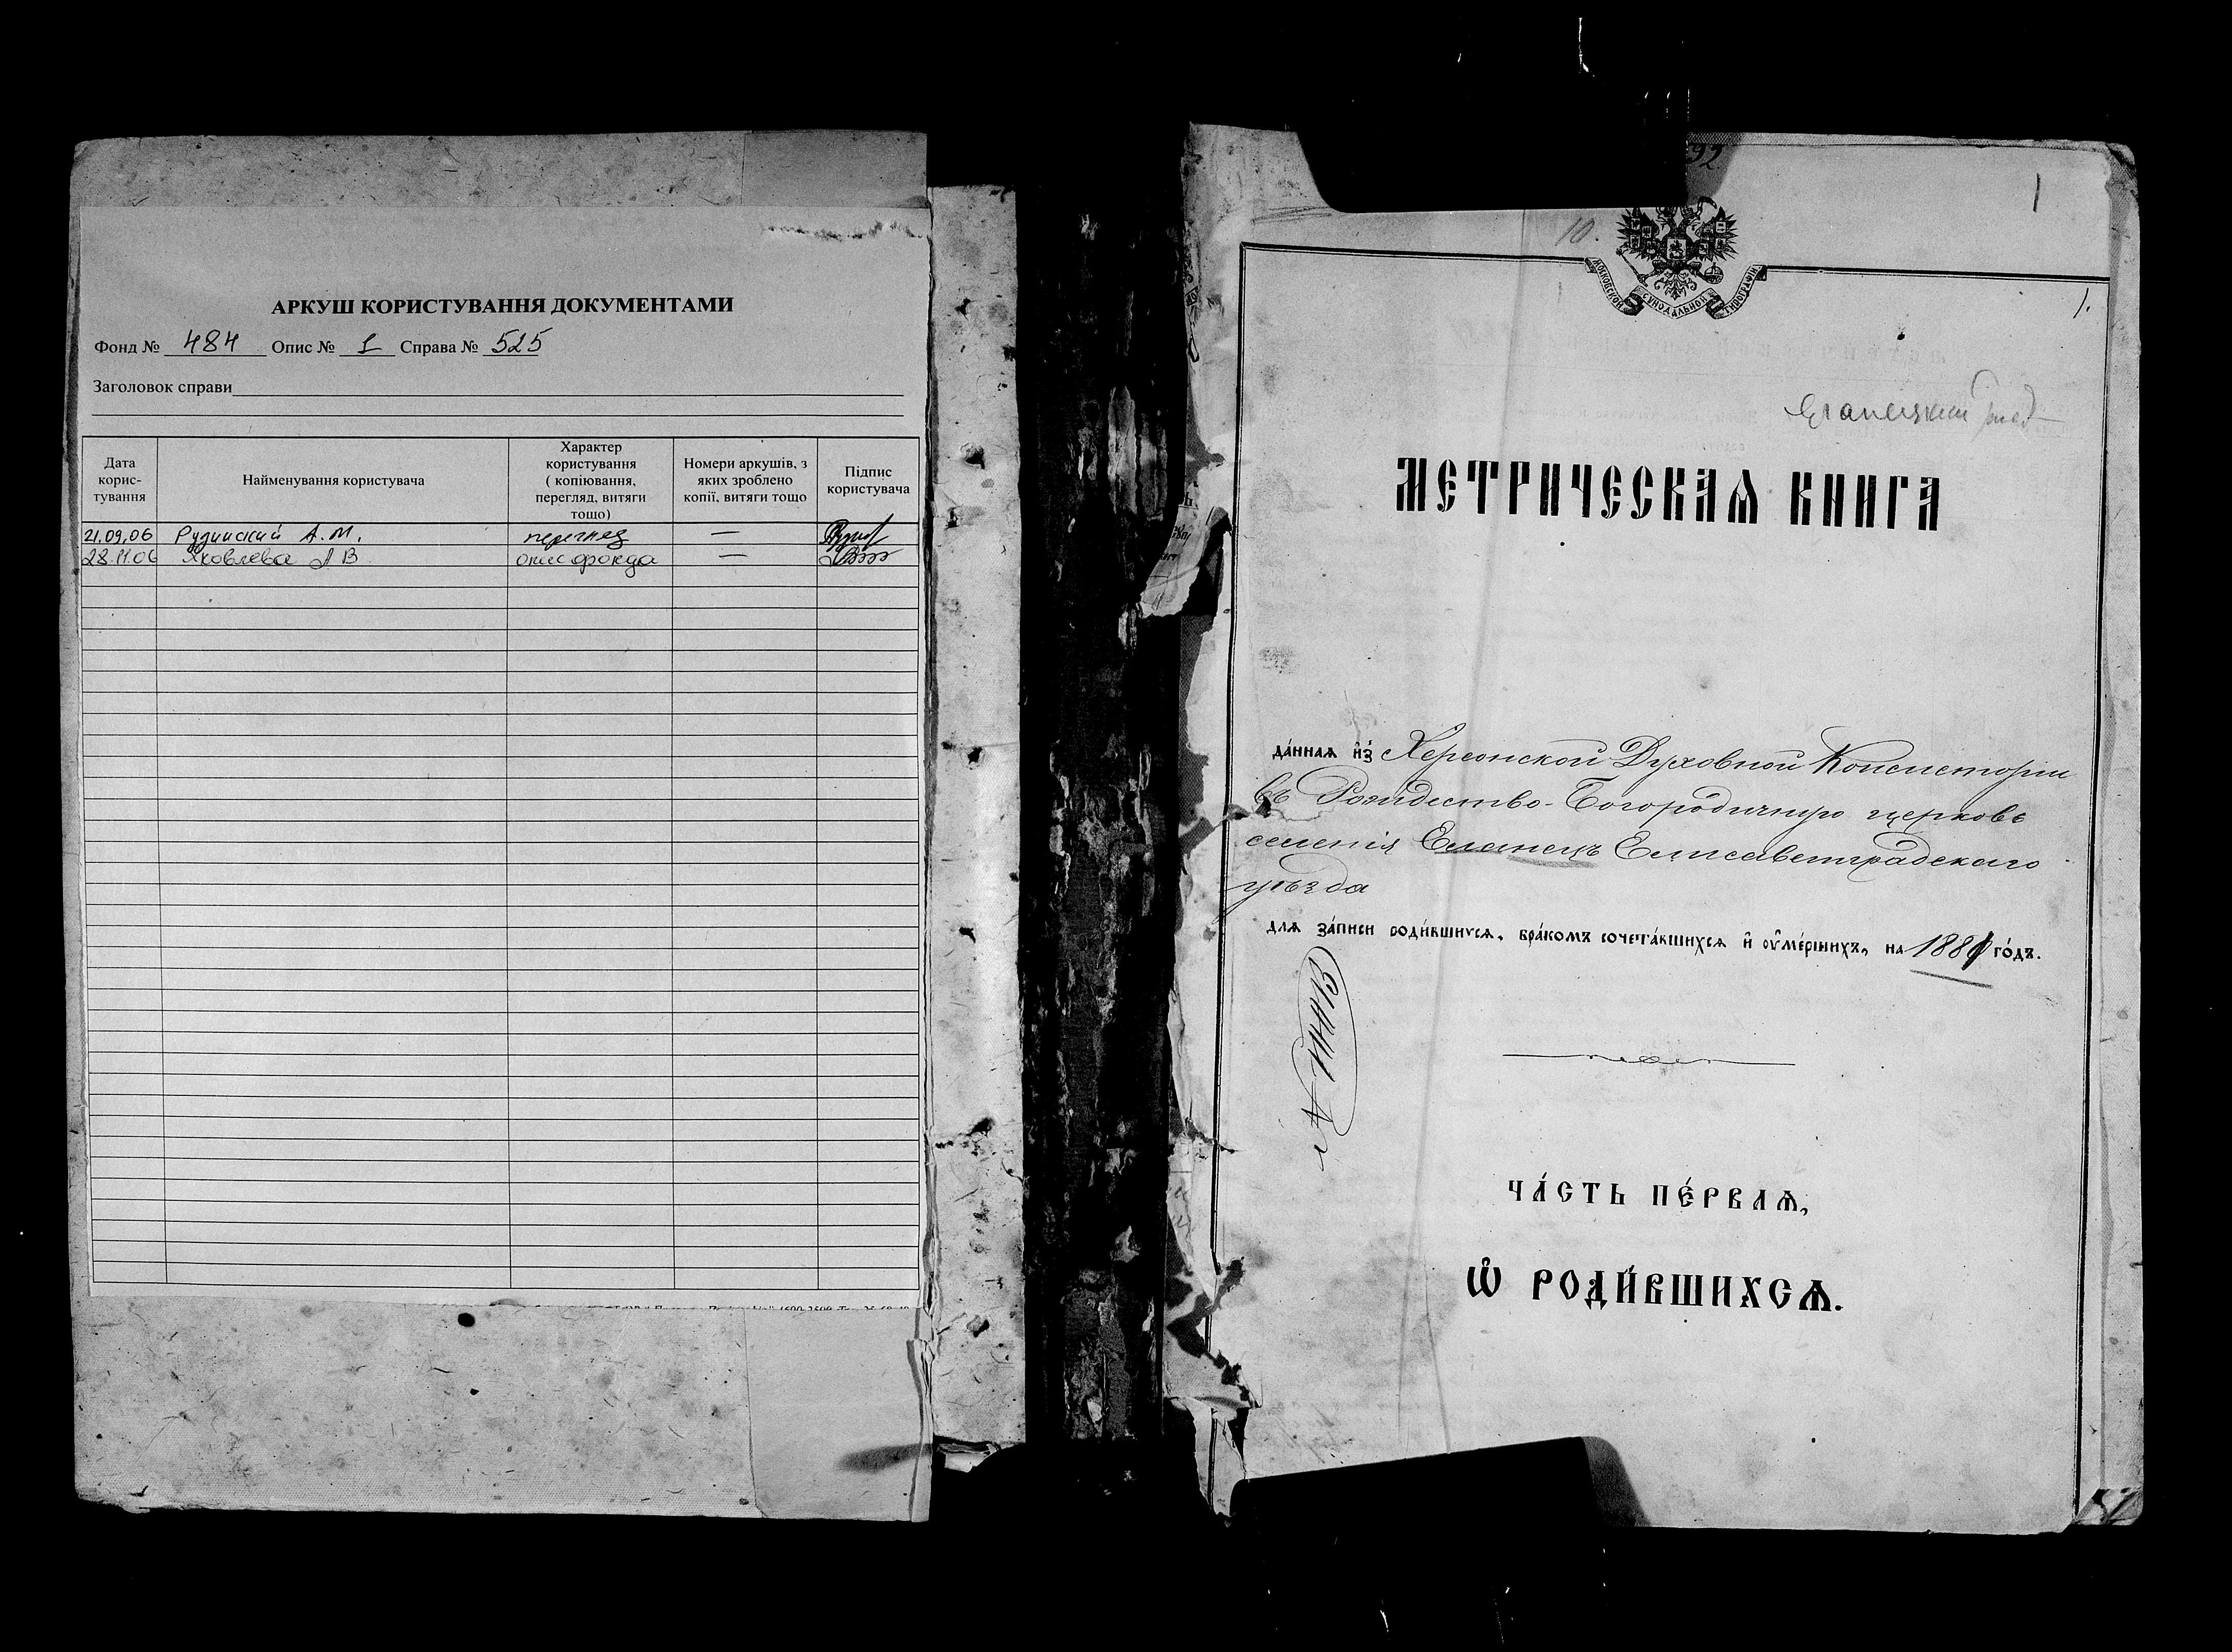 АРКУШ КОРИСТУВАННЯ ДОКУМЕНТАМИ
Фонд № 484 Опис № 1 Справа № 525
Заголовок справи
Дата корис-тування
Найменування користувача
Характер користування ( копіювання, перегляд, витяги тощо)
Номери аркушів, з яких зроблено копії, витяги тощо
Підпис користувача
21.09.06 Рудинский А.М. —
28.11.06 Яковлева А В опис фонда —
92
1
10.
МОСКОВСКОЙ СѴНОДАЛЬНОЙ ТИПОГРАФІИ
1.
МЕТРИЧЕСКАѦ КНИГА
да́ннаѧ и҆з̾ Херсонской Духовной Консисторіи
въ Рождество-Богородичную церковь
селенія Еланецъ Елисаветградскаго
уѣзда
длѧ за́писи роди́вшихсѧ, бра́комъ сочета́вшихсѧ и҆ ᲂу҆ме́ршихъ, на 1881 го́дъ.
ЧА́СТЬ ПЕ́РВАѦ,
Ѡ҆ РОДИ́ВШИХСѦ.